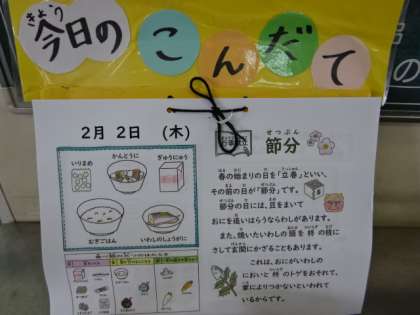 きょう
今日の こんだて
2月 2日 (木)
いりまめ
かんとうに
ぎゅうにゅう
むぎごはん
いわしのしょうがに
せつぶん
節分
春の始まりの日を「立春」といい、
その前の日が「節分」です。
節分の日には、豆をまいて
おにを追いはらうならわしがあります。
また、焼いたいわしの頭を柊の枝に
さして玄関にかざることもあります。
これは、おにがいわしの
においと柊のトゲをおそれて、
家によりつかないといわれて
いるからです。